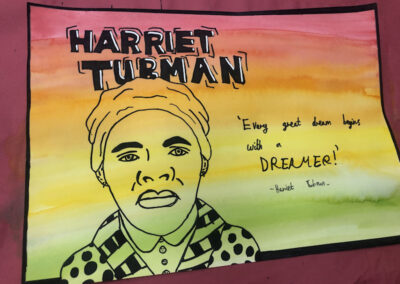 HARRIET
TUBMAN
'Every great dream begins
with a
DREAMER!'
- Harriet Tubman -